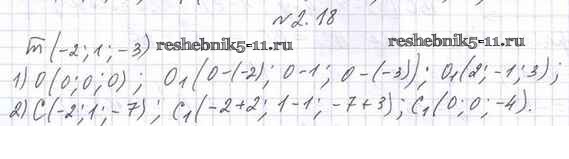 №2.18
m̅(-2; 1; -3)
reshebnik5-11.ru reshebnik5-11.ru
1) O(0; 0; 0); O₁(0-(-2); 0-1; 0-(-3)); O₁(2; -1; 3);
2) C(-2; 1; -7); C₁(-2+2; 1-1; -7+3); C₁(0; 0; -4).